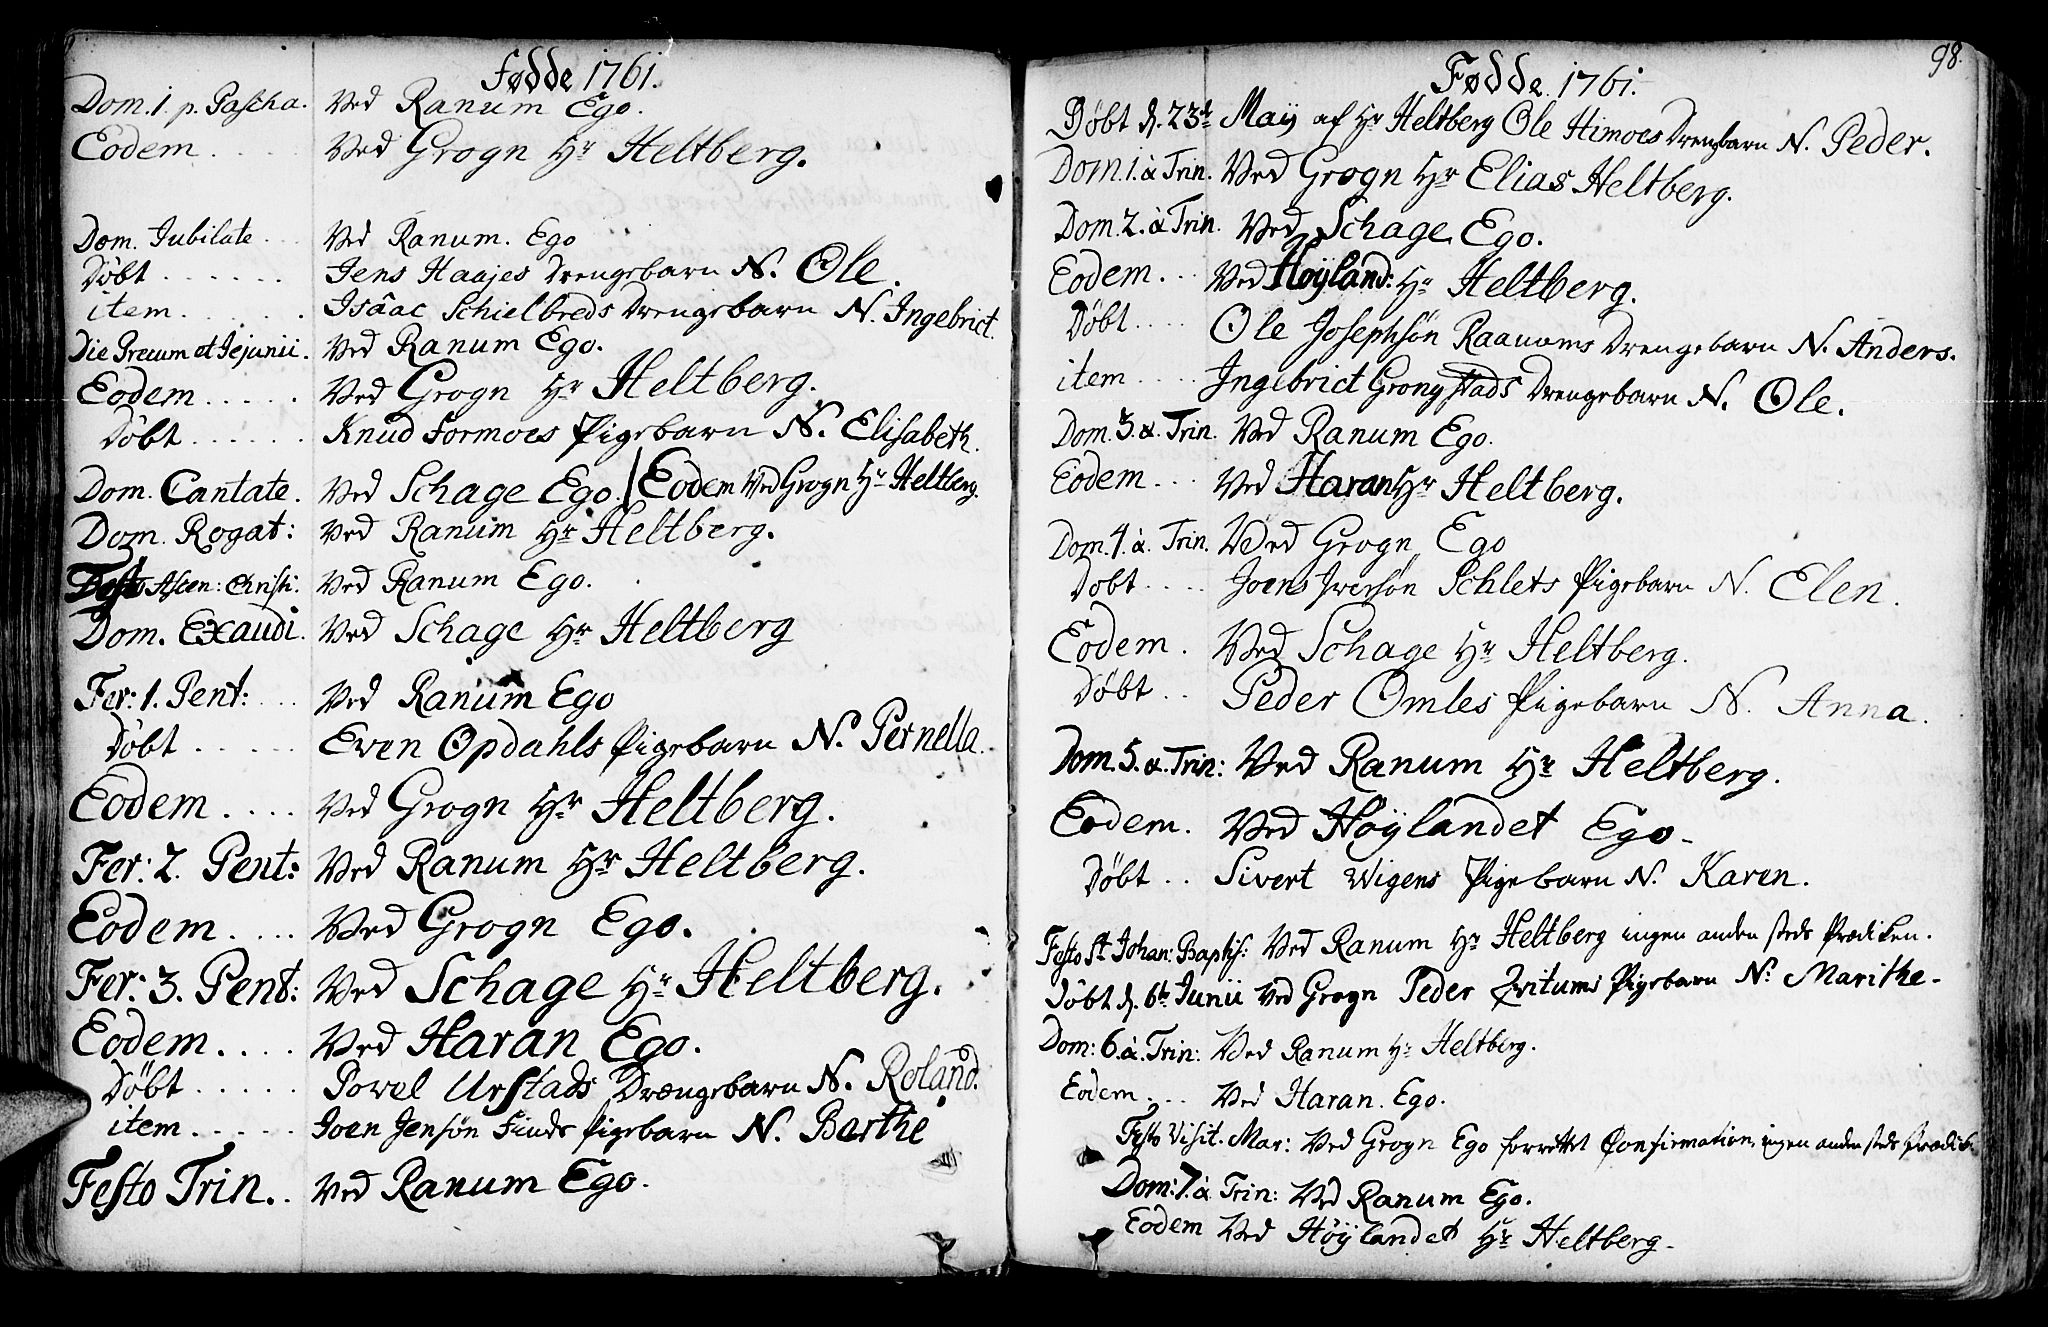 Fødde 1761.
Dom. 1. p. Pascha. Ved Ranum Ego.
Eodem .... Ved Grogn Hr Heltberg.
Dom. Jubilate ... Ved Ranum. Ego
Døbt ...... Jens Haajes Drengebarn N. Ole.
item ...... Isaac Schielbreds Drengebarn N. Ingebrict.
Die Precum et Jejunii. Ved Ranum Ego.
Eodem ..... Ved Grogn Hr Heltberg.
Døbt ...... Knud Formoes Pigebarn N. Elisabeth.
Dom. Cantate. Ved Schage Ego. / Eodem Ved Grogn Hr Heltberg.
Dom. Rogat: Ved Ranum Hr Heltberg.
Festo Ascen: Christi. Ved Ranum Ego.
Dom. Exaudi. Ved Schage Hr Heltberg
Fer: 1. Pent: ... Ved Ranum Ego
Døbt ..... Even Opdahls Pigebarn N. Pernella.
Eodem .... Ved Grogn Hr Heltberg.
Fer: 2. Pent: Ved Ranum Hr Heltberg.
Eodem .... Ved Grogn Ego.
Fer: 3. Pent: Ved Schage Hr Heltberg.
Eodem .... Ved Haran Ego.
Døbt ..... Povel Urstads Drængebarn N. Roland.
item ..... Joen Jensøn Finds Pigebarn N. Barthe
Festo Trin. . Ved Ranum Ego.
98.
Fødde 1761.
Døbt d. 23de Maij af Hr Heltberg Ole Himoes Drengbarn N. Peder.
Dom. 1. à Trin. Ved Grogn Hr Elias Heltberg.
Dom. 2. à Trin. Ved Schage Ego.
Eodem ... Ved Høyland: Hr Heltberg.
Døbt .... Ole Josephsøn Raanoms Drengebarn N. Anders.
item .... Ingebrict Grongstads Drengebarn N. Ole.
Dom. 3. à Trin. Ved Ranum Ego.
Eodem ... Ved Haran Hr Heltberg.
Dom. 4. à Trin. Ved Grogn Ego
Døbt .... Joens Iversøn Schlets Pigebarn N. Elen.
Eodem . Ved Schage Hr Heltberg.
Døbt .. Peder Omles Pigebarn N. Anna.
Dom. 5. à Trin: Ved Ranum Hr Heltberg.
Eodem. Ved Høylandet Ego.
Døbt .. Sivert Wigens Pigebarn N. Karen.
Festo St Johan: Baptis: Ved Ranum Hr Heltberg ingen anden steds Prædiken.
Døbt d. 6te Junii Ved Grogn Peder Pigebarn N. Marithe.
Dom: 6. à Trin: Ved Ranum Hr Heltberg.
Eodem ... Ved Haran. Ego.
Festo Visit. Mar: Ved Grogn Ego forrettet Confirmation, ingen anden steds Prædik.
Dom: 7. à Trin: Ved Ranum Ego.
Eodem Ved Høylandet Hr Heltberg.